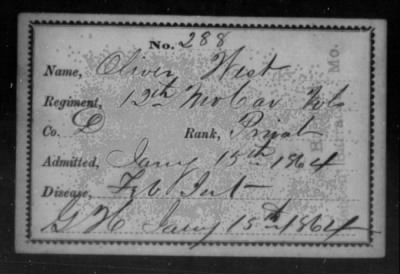 No. 288
Name, Oliver West
Regiment, 12th Mo Cav Vols
Co. L Rank, Privat
Admitted, Jany 15th 1864
Disease, Feb Int
G H Jany 15th 1864
Mo.